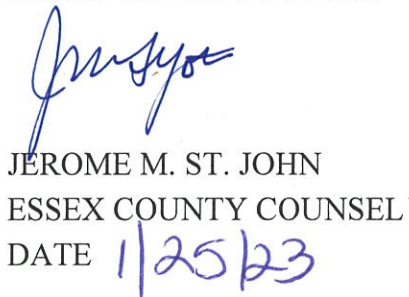 JEROME M. ST. JOHN
ESSEX COUNTY COUNSEL
DATE 1/25/23